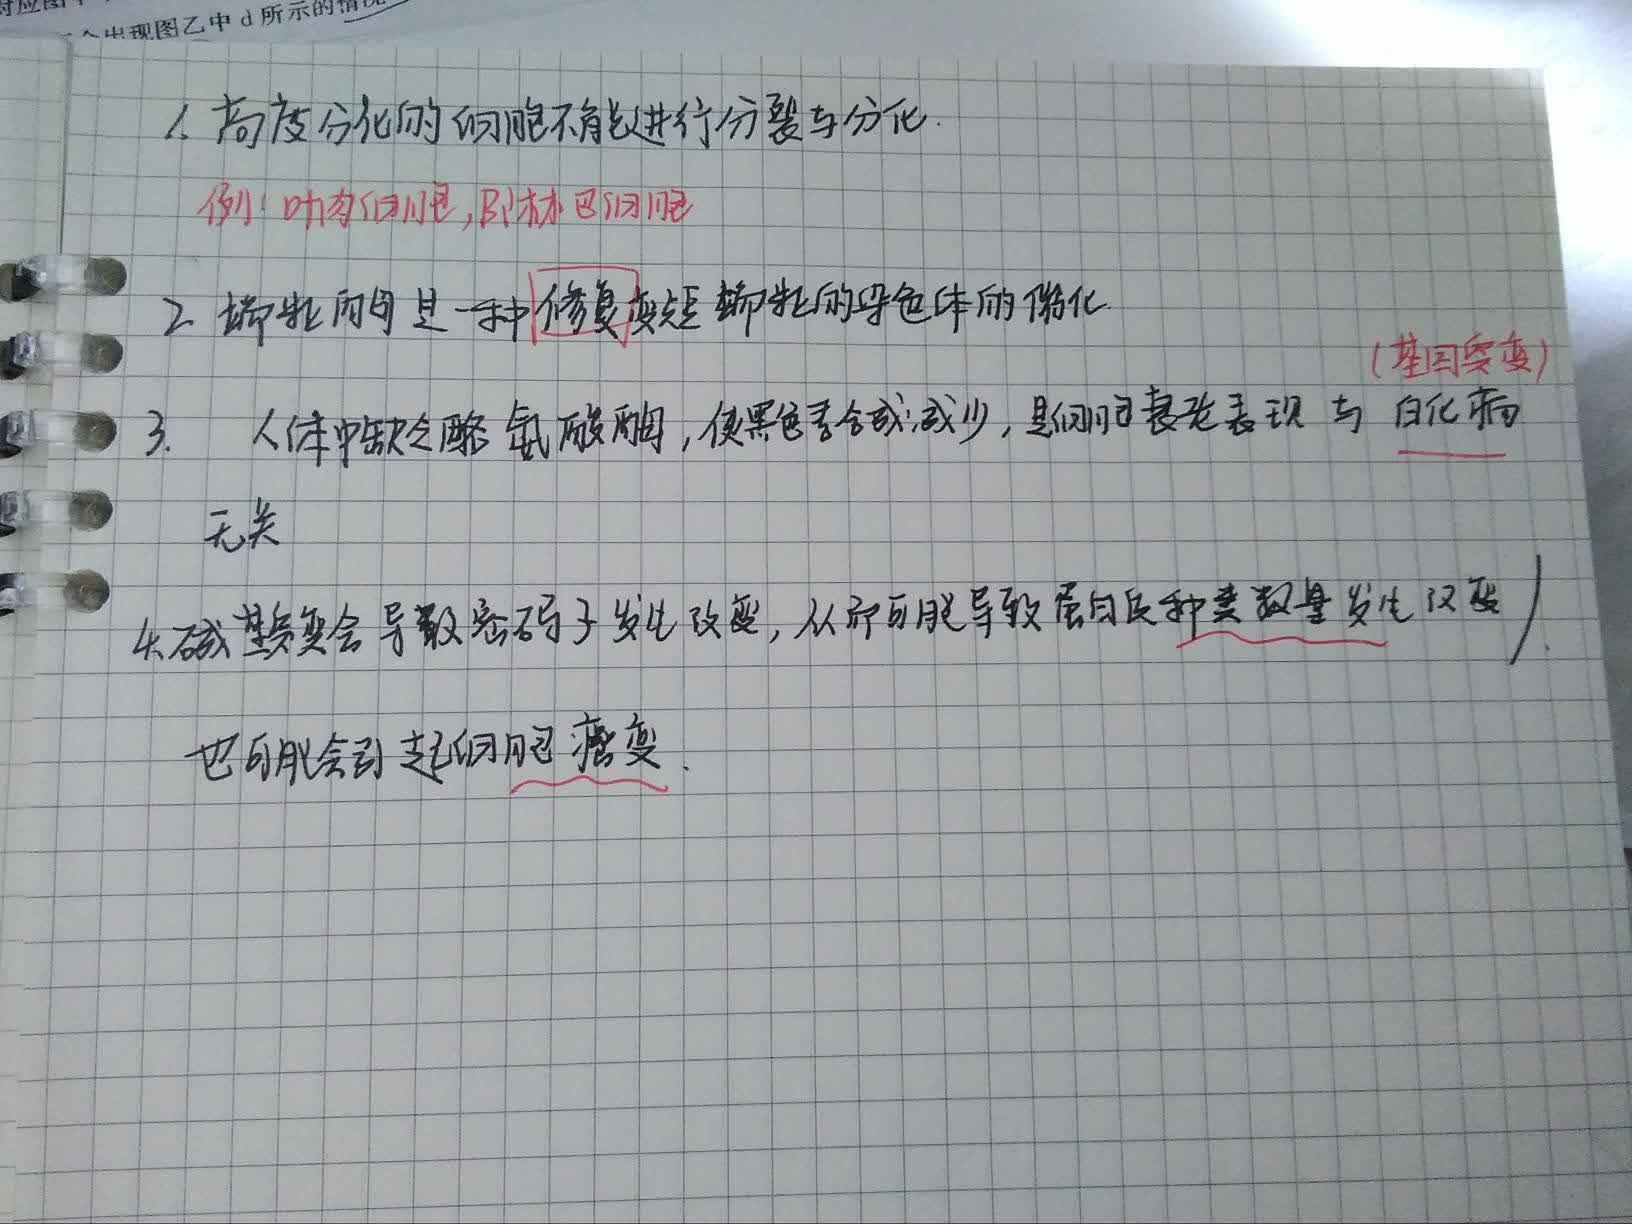 出现图乙中 d 所示的情况
1. 高度分化的细胞不能进行分裂与分化.
例: 叶肉细胞, B淋巴细胞
2. 端粒酶是一种修复变短端粒的染色体的
(基因突变)
3. 人体中缺乏酪氨酸酶, 使黑色素合成减少, 是细胞衰老表现 与 白化病
无关
4. 碱基突变会导致密码子发生改变, 从而可能导致蛋白质种类数量发生改变
也可能会引起细胞癌变.